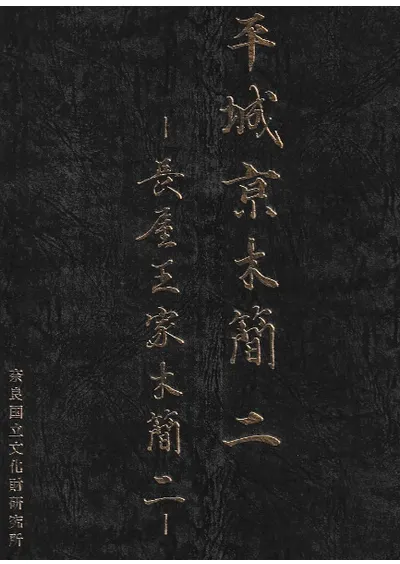 平城京木簡二
－長屋王家木簡二－
奈良国立文化財研究所